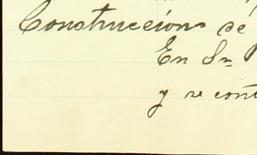 Construccion de
En Sn
y se cont